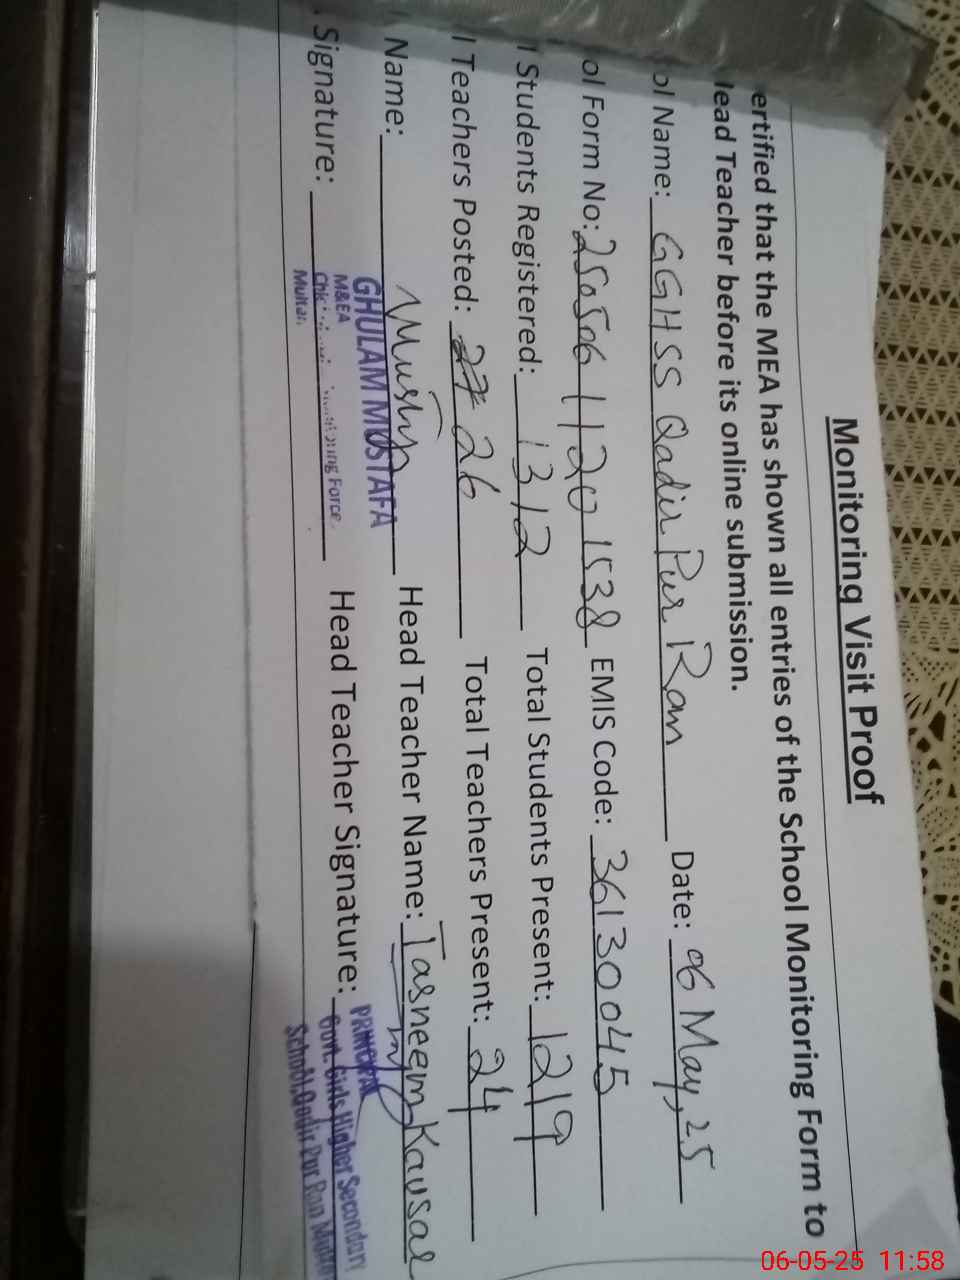 Monitoring Visit Proof
ertified that the MEA has shown all entries of the School Monitoring Form to
lead Teacher before its online submission.
ol Name: GGHSS Qadir Pur Ran Date: 06 May, 25
ol Form No: 250506 1120 1538 EMIS Code: 36130045
l Students Registered: 1312 Total Students Present: 1219
l Teachers Posted: 27 26 Total Teachers Present: 24
Name: Head Teacher Name: Tasneem Kausar
GHULAM MUSTAFA
Signature: Head Teacher Signature:
M&EA
Force
Multan
PRINCIPAL
Govt. Girls Higher Secondary
School, Qadir Pur Ran Multan
06-05-25 11:58